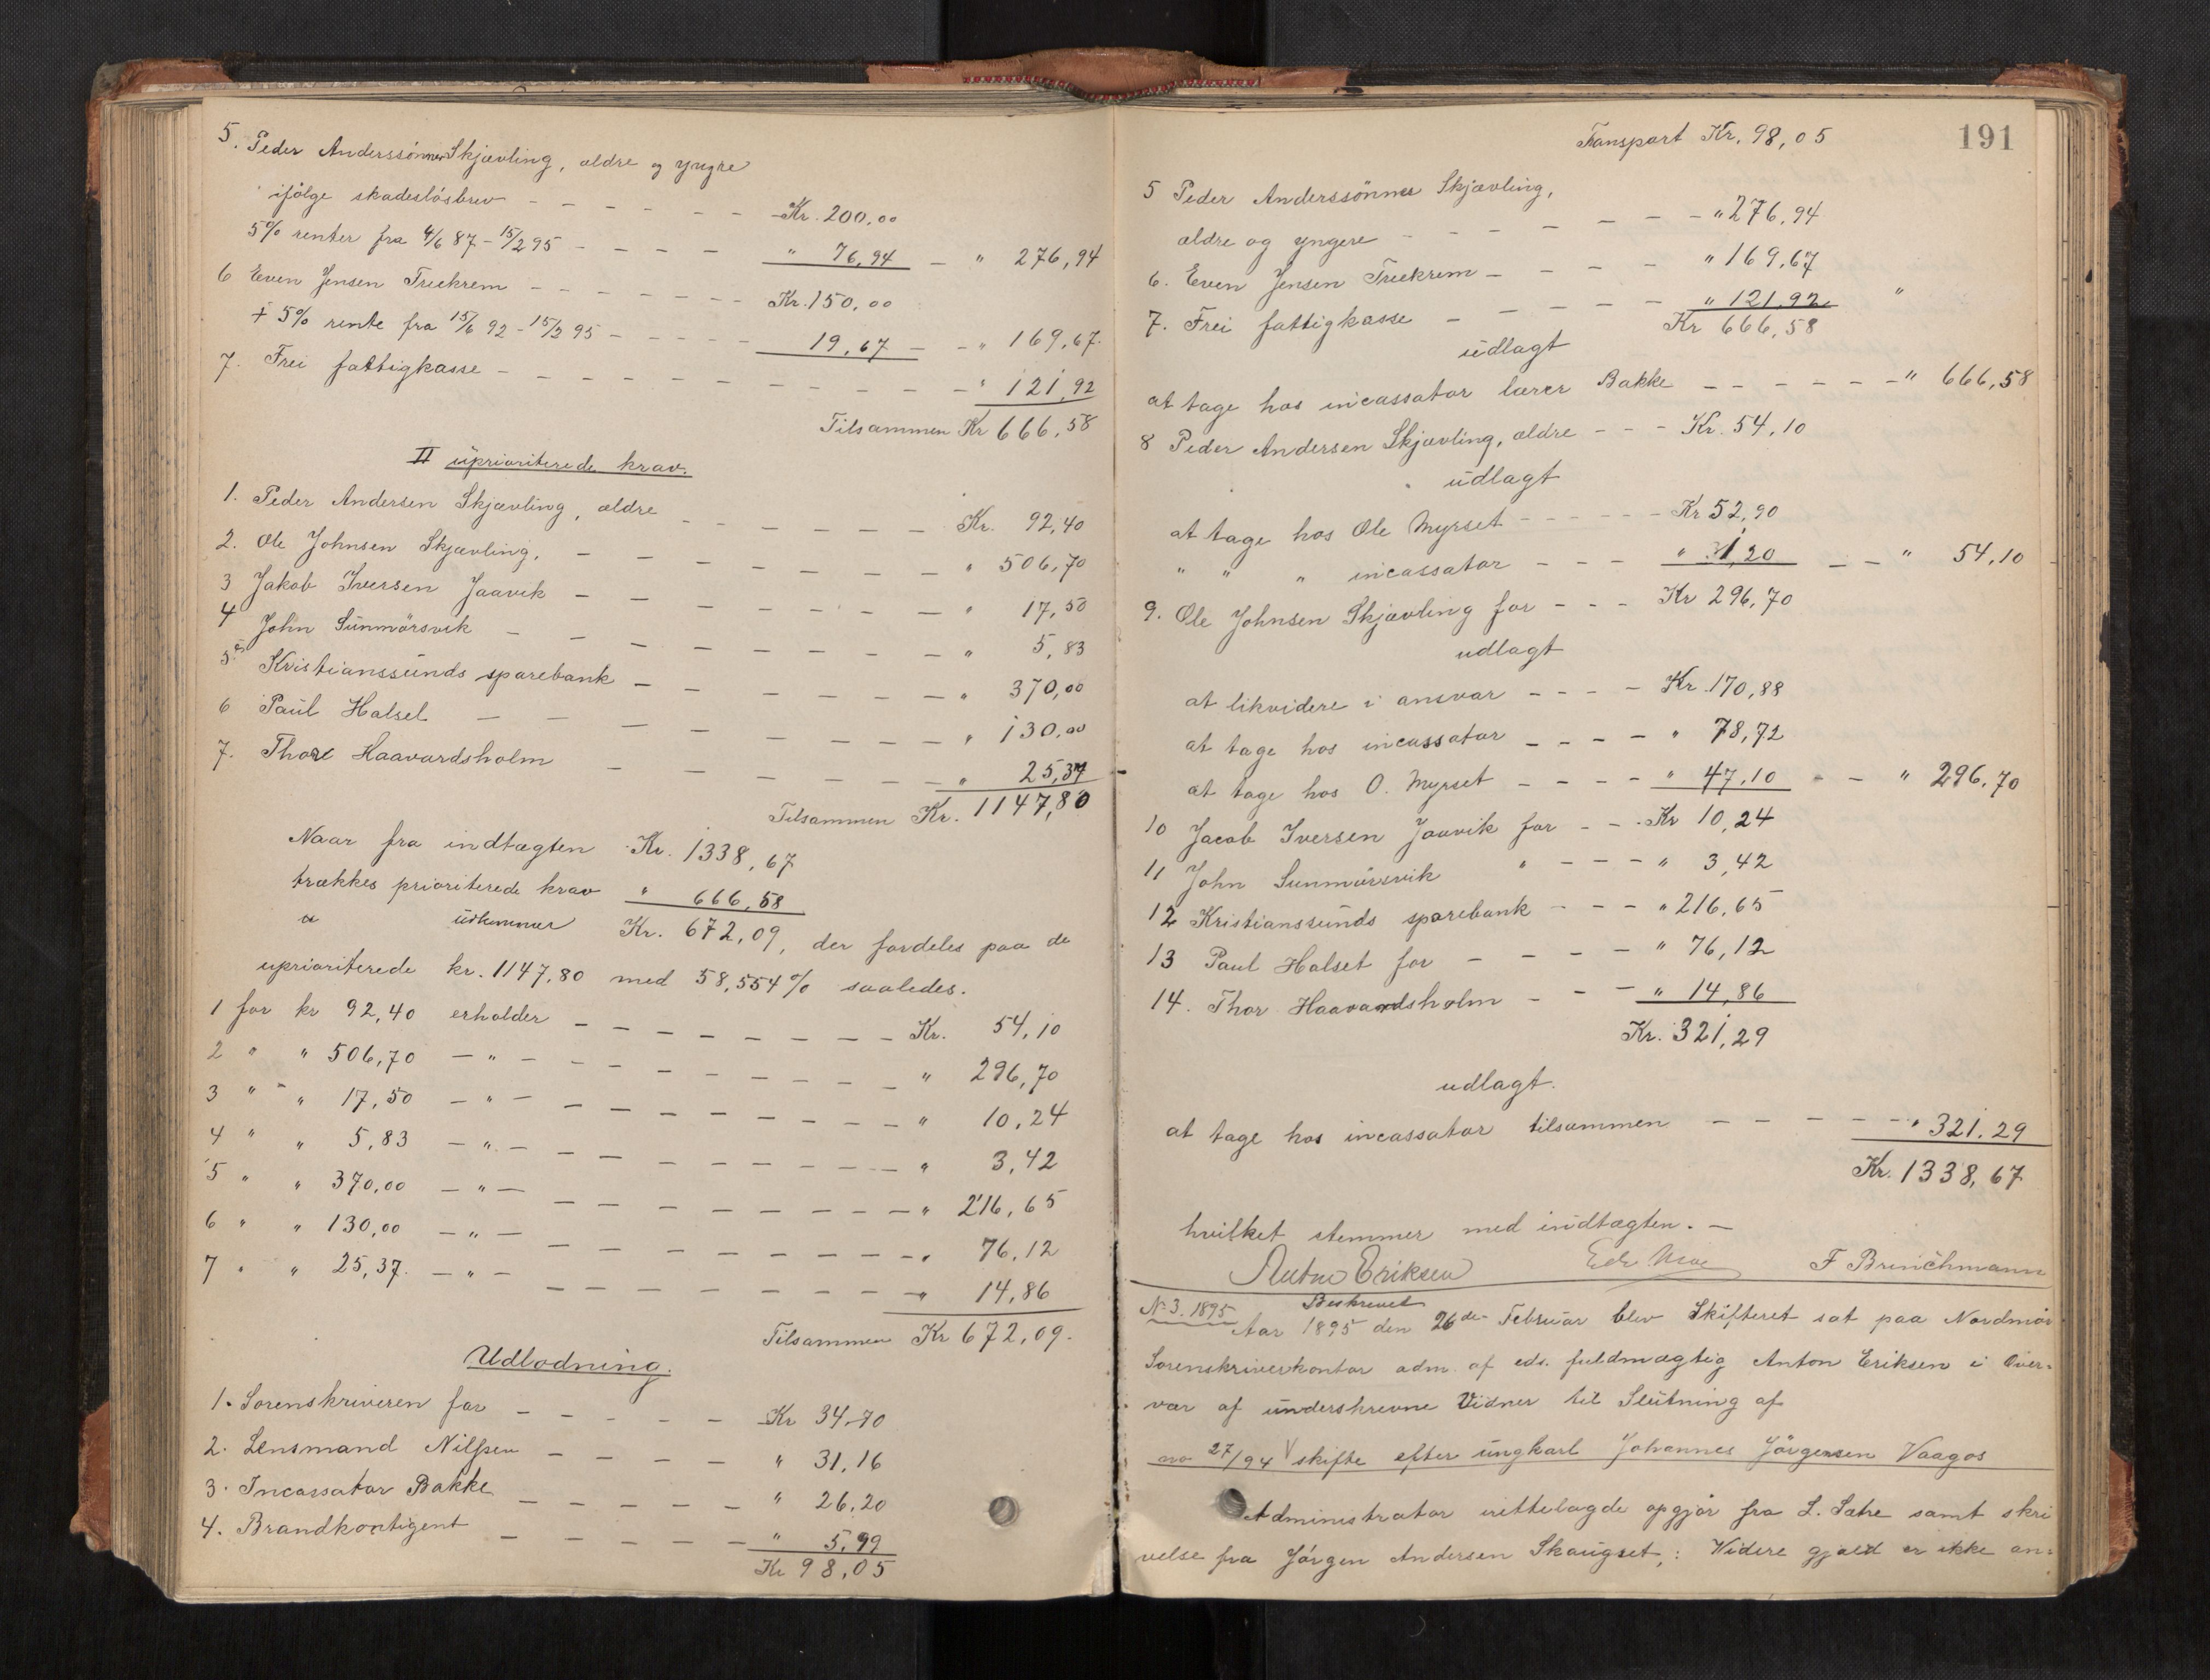 5. Peder Anderssönner Skjævling, ældre og yngre
ifölge skadeslösbrev - - - - - - Kr. 200,00
5% renter fra 4/6 87 - 15/2 95 - - - - " 76,94 - " 276,94
6 Even Jensen Treekrem - - - - - - - Kr. 150,00
+ 5% rente fra 15/6 92 - 15/2 95 - - - - - 19,67 - - " 169,67.
7. Frei fattigkasse - - - - - - - - - - - " 121,92
Tilsammen Kr 666,58
II upriöriterede krav.
1. Peder Andersen Skjævling, ældre - - - - - - Kr. 92,40
2. Ole Johnsen Skjævling, - - - - - - - " 506,70
3 Jakob Iversen Jaavik - - - - - - - - " 17,50
4 John Sünmörsvik - - - - - - - - " 5,83
5. Kristianssünds sparebank - - - - - - - " 370,00
6 Paül Halsel - - - - - - - - " 130,00
7. Thore Haavardsholm - - - - - - " 25,37
Tilsammen Kr. 1147,80
Naar fra indtægten Kr. 1338,67
trækkes prioriterede krav " 666,58
udkommer Kr. 672,09, der fordeles paa de
uprioriterede kr. 1147,80 med 58,554% saaledes.
1 for kr 92,40 erholder - - - - - - - - Kr. 54,10
2 " " 506,70 - " - - - - - - - - - " 296,70
3 " " 17,50 - " - - - - - - - - - " 10,24
4 " " 5,83 - " - - - - - - - - - " 3,42
5 " " 370,00 - " - - - - - - - - - " 216,65
6 " " 130,00 - " - - - - - - - - - " 76,12
7 " " 25,37. - " - - - - - - - - - " 14,86
Tilsammen Kr 672,09.
Udlodning.
1. Sorenskriveren for - - - - - Kr 34,70
2. Lensmand Nilssen - - - - " 31,16
3. Incassator Bakke - - - - - " 26,20
4. Brandkontigent - - - - - " 5,99
Kr 98,05
191
Transport Kr. 98,05
5 Peder Anderssönner Skjævling,
ældre og yngere - - - - - - - " 276,94
6. Even Jensen Treekrem - - - - " 169,67
7. Frei fattigkasse - - - - - " 121,92 "
Kr 666,58
udlagt
at tage hos incassator lærer Bakke - - - - - - " 666,58
8 Peder Andersen Skjævling, ældre - - - Kr. 54,10
udlagt
at tage hos Ole Myrset - - - - - - Kr 52,90
" " " incassator - - - " 1,20 - - " 54,10
9. Ole Johnsen Skjævling for - - - Kr 296,70
udlagt
at likvidere i ansvar - - - - Kr. 170,88
at tage hos incassator - - - - " 78,72
at tage hos O. Myrset - - - - " 47,10 - - " 296,70
10 Jacob Iversen Jaavik for - - - Kr 10,24
11 John Sunmörsvik " - - - " 3,42
12 Kristianssünds sparebank - - - " 216,65
13 Paul Halset for - - - - " 76,12
14. Thor Haavardsholm - - - " 14,86
Kr. 321,29
udlagt.
at tage hos incassator tilsammen - - - - - " 321,29
Kr. 1338,67
hvilket stemmer med indtægten. -
Anton Eriksen Edv Moe F Brinchmann
No 3. 1895 Beskrevet
Aar 1895 den 26de Februar blev Skifteret sat paa Nordmör
Sorenskriverkontor adm. af eds. fuldmægtig Anton Eriksen i Over-
vær af underskrevne Vidner til Slutning af
no 27/94 skifte efter ungkarl Johannes Jörgensen Vaagos
Administrator irettelagde opgjör fra L. Sæhre samt skri
velse fra Jörgen Andersen Skaugset,: Videre gjæld er ikke an-